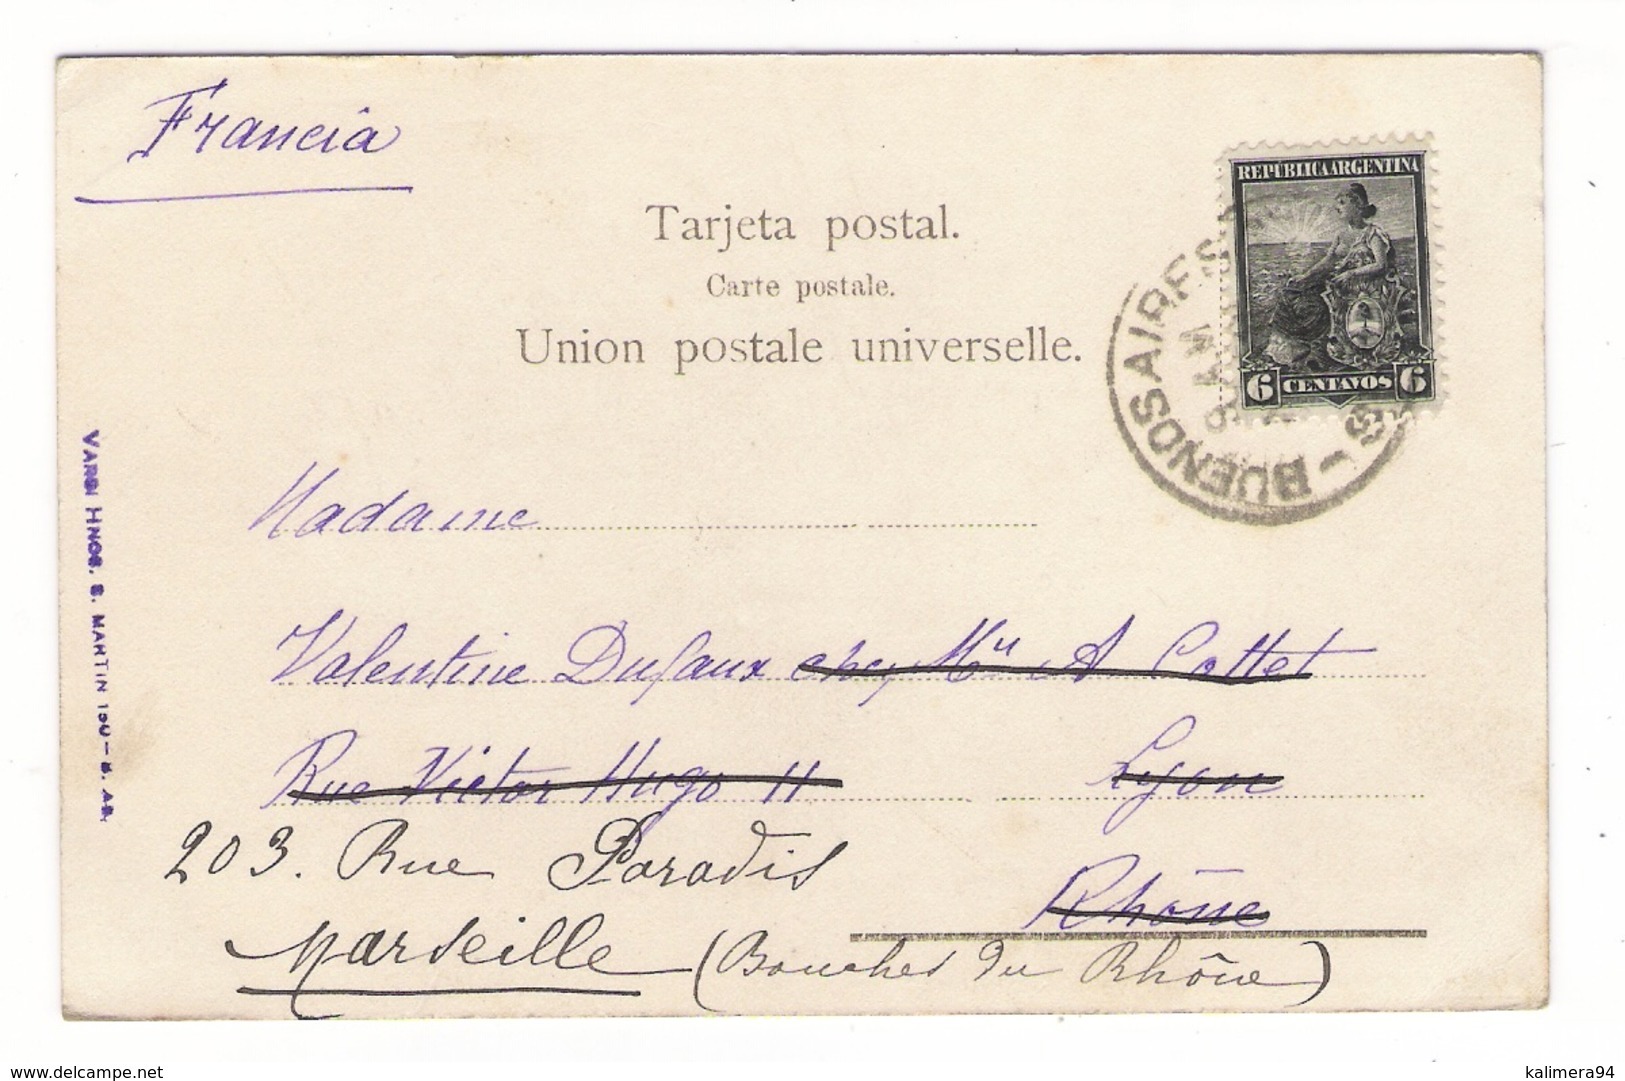 Francia
REPÚBLICA ARGENTINA
6 CENTAVOS 6
BUENOS AIRES
Tarjeta postal.
Carte postale.
Union postale universelle.
VARSI HNOS. S. MARTIN 150 – B. AR.
Madame
Valentine Dufaux chez Mlle A Cottet
Rue Victor Hugo 11 Lyon
Rhône
203. Rue Paradis
Marseille (Bouches du Rhône)
delcampe.net
kalimera94